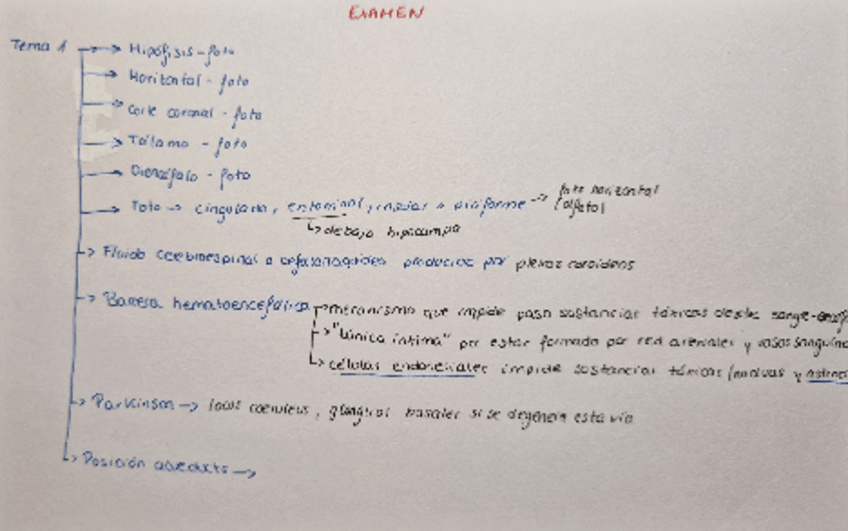 EXAMEN
Tema 1 → Hipófisis - foto
→ Horizontal - foto
→ Corte coronal - foto
→ Tálamo - foto
→ Diencéfalo - foto
→ Foto → cingulada, entorrinal, insular o piriforme → foto horizontal
↳ debajo hipocampo
→ Fluido cerebroespinal o cefalorraquídeo producido por plexos coroideos
→ Barrera hematoencefálica → mecanismo que impide paso sustancias tóxicas desde sangre-
→ "túnica íntima" por estar formado por red arteriales y vasos
↳ células endoteliales impide sustancias tóxicas y
→ Parkinson → locus coeruleus, ganglios basales si se degenera esta vía
↳ Posición acueducto →